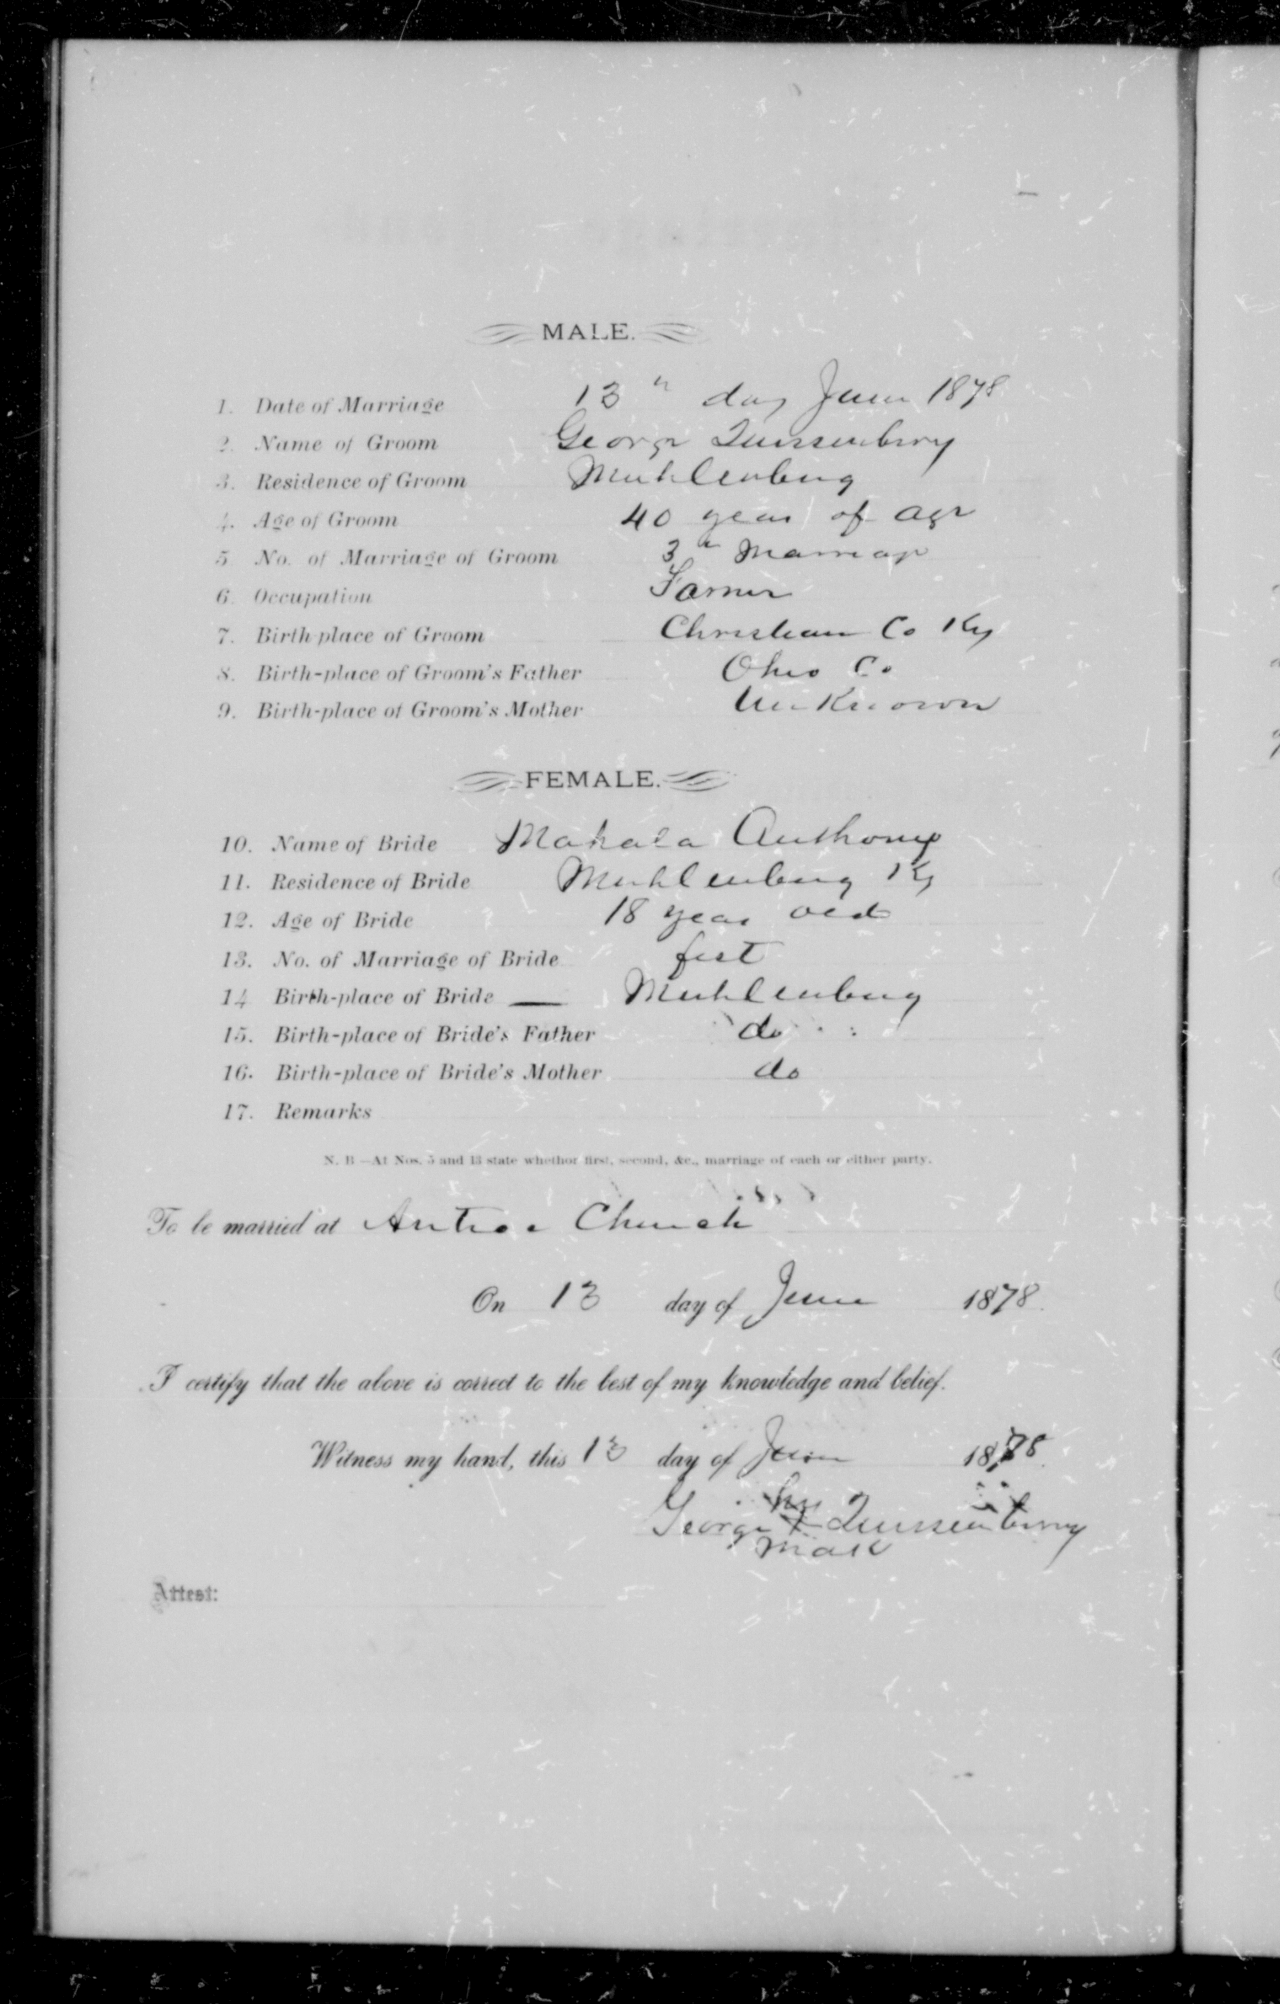 MALE.
1. Date of Marriage 13th day June 1878
2. Name of Groom George Quissenberry
3. Residence of Groom Muhlenburg
4. Age of Groom 40 years of age
5 No. of Marriage of Groom 3d Marriage
6. Occupation Farmer
7. Birth place of Groom Christian Co Ky
8. Birth-place of Groom's Father Ohio Co
9. Birth-place of Groom's Mother Unknown
FEMALE.
10. Name of Bride Mahala Anthony
11. Residence of Bride Muhlenburg Ky
12. Age of Bride 18 year old
13. No. of Marriage of Bride first
14 Birth-place of Bride — Muhlenburg
15. Birth-place of Bride's Father do
16. Birth-place of Bride's Mother do
17. Remarks
N. B —At Nos. 5 and 13 state whether first, second, &c., marriage of each or either party.
To be married at Church
On 13 day of June 1878.
I certify that the above is correct to the best of my knowledge and belief.
Witness my hand, this 13 day of June 1878.
his
George X Quissenberry
mark
Attest: